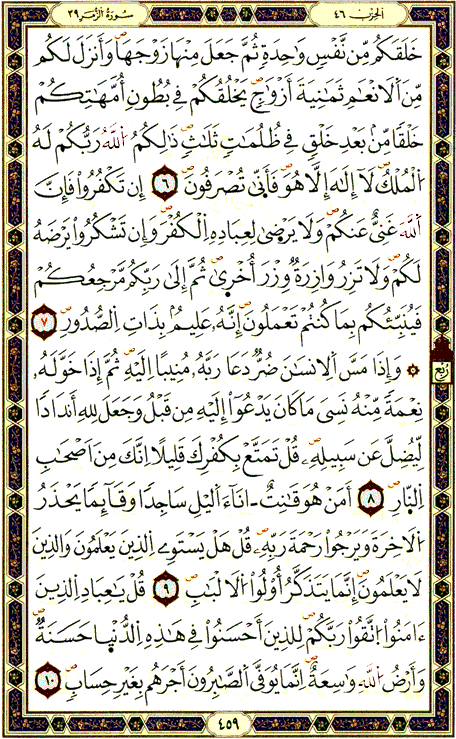 الحزب ٤٦
سورة الزمر ٣٩
خَلَقَكُم مِّن نَّفْسٖ وَٰحِدَةٖ ثُمَّ جَعَلَ مِنْهَا زَوْجَهَا وَأَنزَلَ لَكُم
مِّنَ اَ۬لَانْعَٰمِ ثَمَٰنِيَةَ أَزْوَٰجٖۖ يَخْلُقُكُمْ فِي بُطُونِ أُمَّهَٰتِكُمْ
خَلْقاٗ مِّنۢ بَعْدِ خَلْقٖ فِي ظُلُمَٰتٖ ثَلَٰثٖۖ ذَٰلِكُمُ اُ۬للَّهُ رَبُّكُمْ لَهُ
اُ۬لْمُلْكُۖ لَا إِلَٰهَ إِلَّا هُوَۖ فَأَنّ۪يٰ تُصْرَفُونَۖ ٦ إِن تَكْفُرُواْ فَإِنَّ
اَ۬للَّهَ غَنِيٌّ عَنكُمْۖ وَلَا يَرْض۪يٰ لِعِبَادِهِ اِ۬لْكُفْرَۖ وَإِن تَشْكُرُواْ يَرْضَهُ
لَكُمْۖ وَلَا تَزِرُ وَازِرَةٞ وِزْرَ أُخْر۪يٰۖ ثُمَّ إِلَىٰ رَبِّكُم مَّرْجِعُكُمْ
فَيُنَبِّئُكُم بِمَا كُنتُمْ تَعْمَلُونَۖ إِنَّهُۥ عَلِيمُۢ بِذَاتِ اِ۬لصُّدُورِۖ ٧
۞ وَإِذَا مَسَّ اَ۬لِانسَٰنَ ضُرّٞ دَعَا رَبَّهُۥ مُنِيباً اِلَيْهِۖ ثُمَّ إِذَا خَوَّلَهُۥ
نِعْمَةٗ مِّنْهُ نَسِيَ مَا كَانَ يَدْعُواْ إِلَيْهِ مِن قَبْلُ وَجَعَلَ لِلهِ أَندَاداٗ
لِّيُضِلَّ عَن سَبِيلِهِۦۖ قُلْ تَمَتَّعْ بِكُفْرِكَ قَلِيلاً اِنَّكَ مِنَ اَصْحَٰبِ
اِ۬لنّ۪ارِۖ ٨ أَمَنْ هُوَ قَٰنِتٌ ـ اٰنَآءَ اَ۬ليْلِ سَاجِداٗ وَقَآئِماٗ يَحْذَرُ
اُ۬لَاخِرَةَ وَيَرْجُواْ رَحْمَةَ رَبِّهِۦۖ قُلْ هَلْ يَسْتَوِے اِ۬لذِينَ يَعْلَمُونَ وَالذِينَ
لَا يَعْلَمُونَۖ إِنَّمَا يَتَذَكَّرُ أُوْلُواْ اُ۬لَالْبَٰبِۖ ٩ قُلْ يَٰعِبَادِ اِ۬لذِينَ
ءَامَنُواْ اُ۪تَّقُواْ رَبَّكُمْۖ لِلذِينَ أَحْسَنُواْ فِي هَٰذِهِ اِ۬لدُّنْي۪ا حَسَنَةٞۖ
وَأَرْضُ اُ۬للَّهِ وَٰسِعَةٌۖ اِنَّمَا يُوَفَّي اَ۬لصَّٰبِرُونَ أَجْرَهُم بِغَيْرِ حِسَابٖۖ ١٠
ربع
٤٥٩